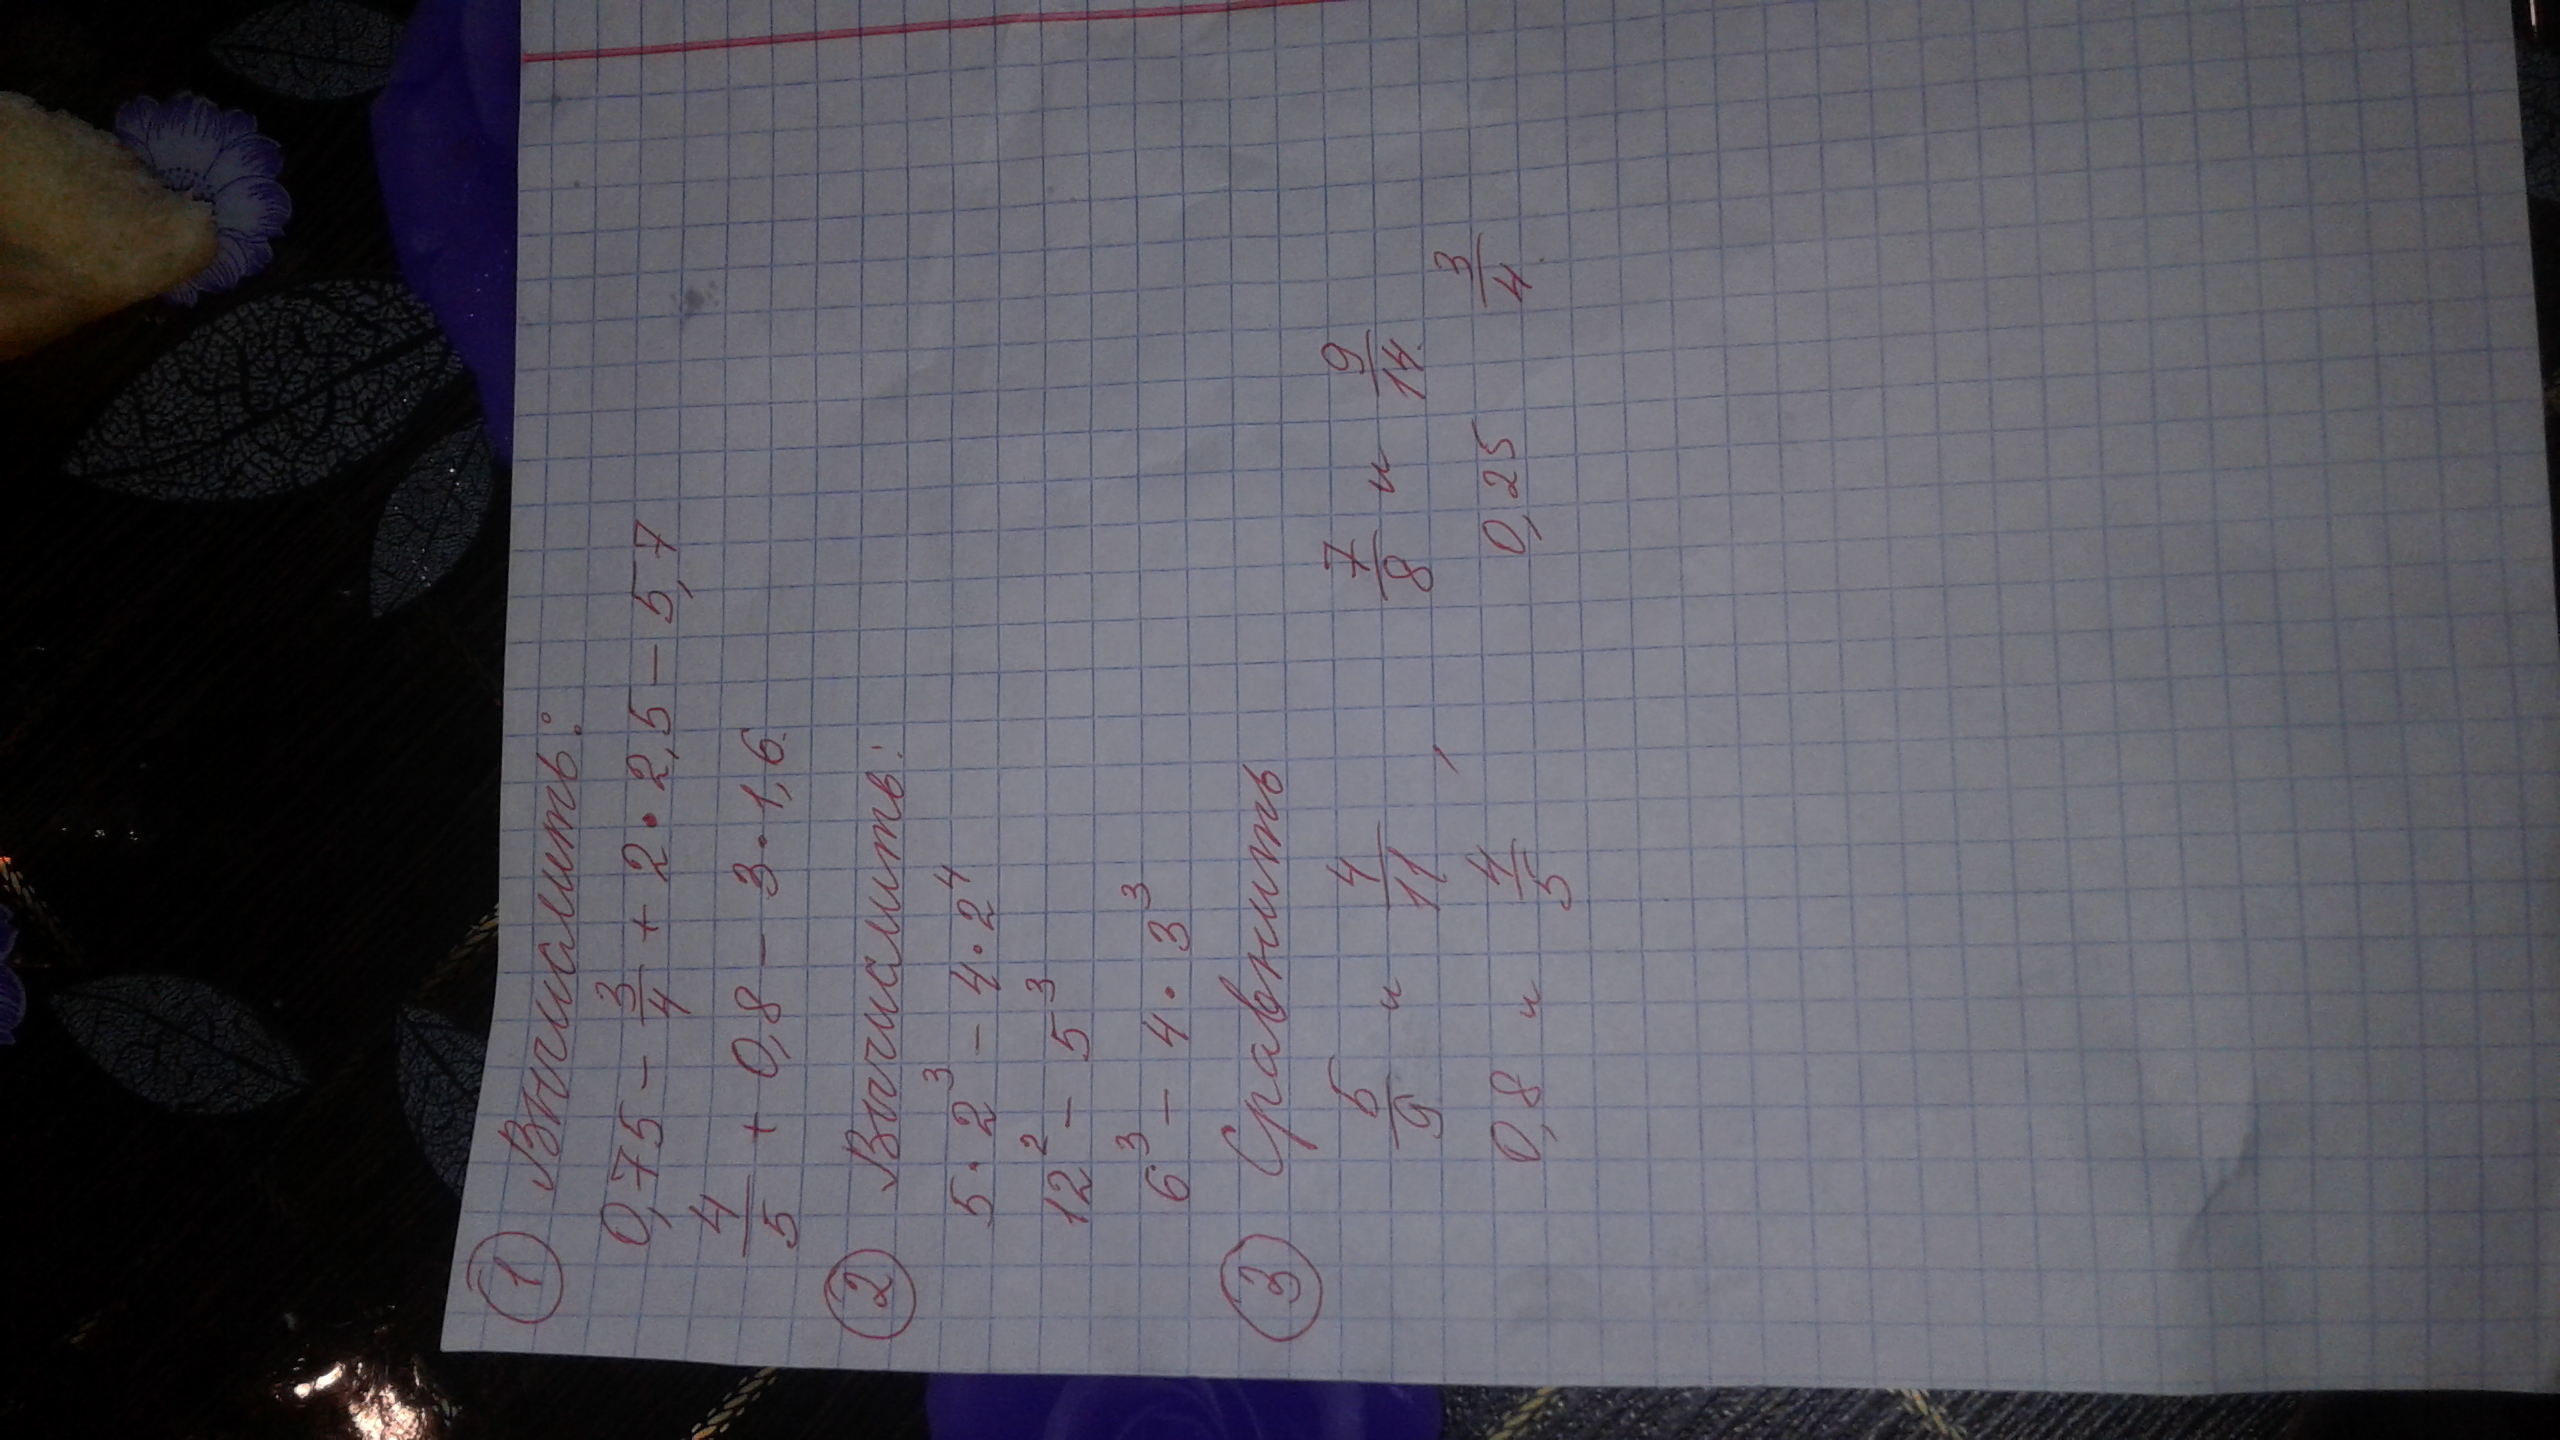 ① Вычислить:
0,75 - 3/4 + 2 · 2,5 - 5,7
4/5 + 0,8 - 3 · 1,6.
② Вычислить:
5 · 2³ - 4 · 2⁴
12² - 5³
6³ - 4 · 3³
③ Сравнить
5/9 и 4/11 , 7/8 и 9/14
0,8 и 4/5 0,25 3/4